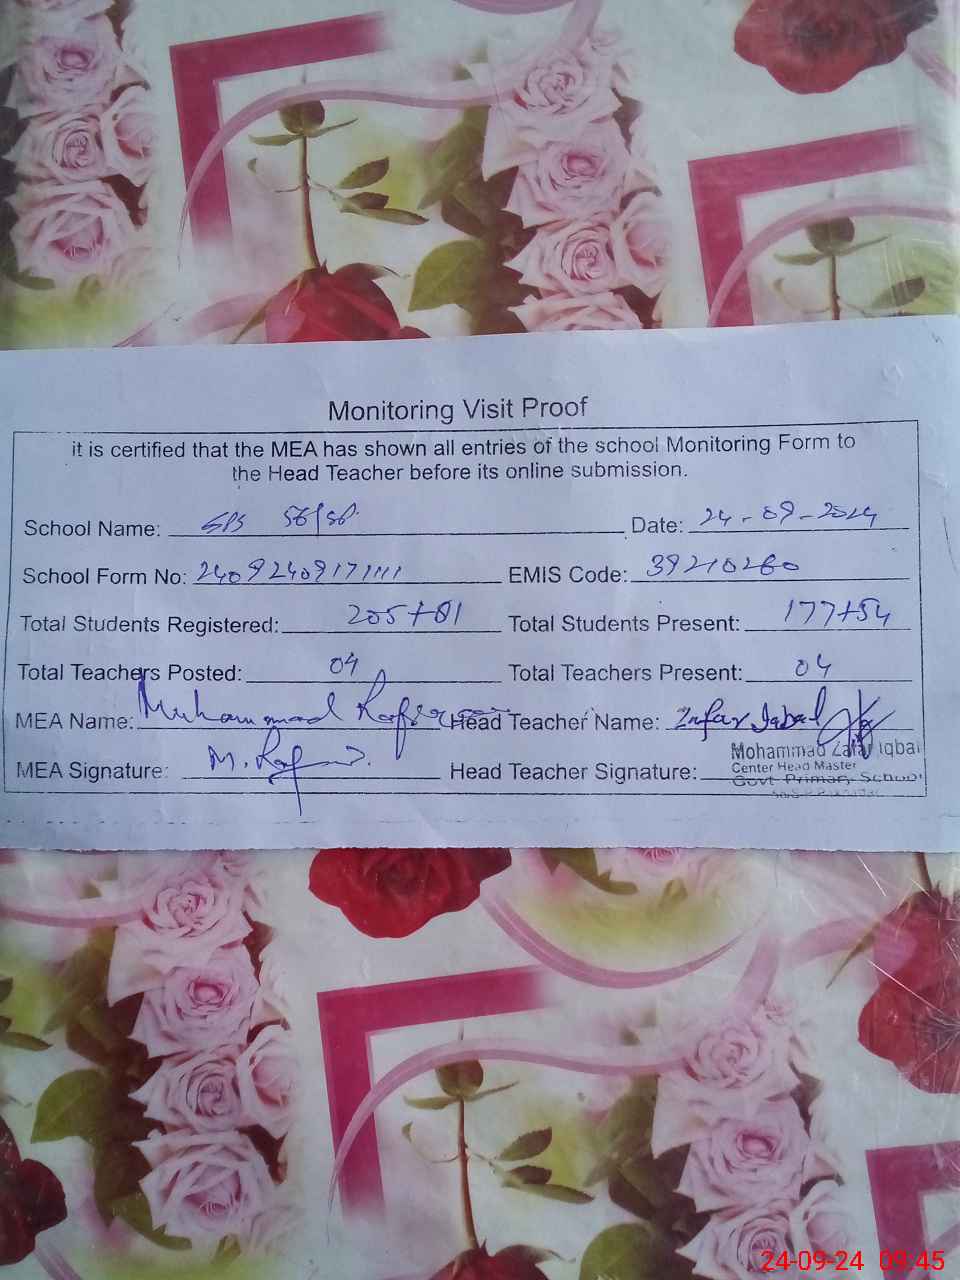 Monitoring Visit Proof
it is certified that the MEA has shown all entries of the school Monitoring Form to
the Head Teacher before its online submission.
School Name: GPS 56/SP Date: 24-09-2024
School Form No: 24092409171111 EMIS Code: 39210260
Total Students Registered: 205+81 Total Students Present: 177+54
Total Teachers Posted: 04 Total Teachers Present: 04
MEA Name: Muhammad Head Teacher Name: Zafar Iqbal
MEA Signature: M. Head Teacher Signature:
Mohammad Zafar Iqbal
Center Head Master
Govt Primary School
24-09-24 09:45